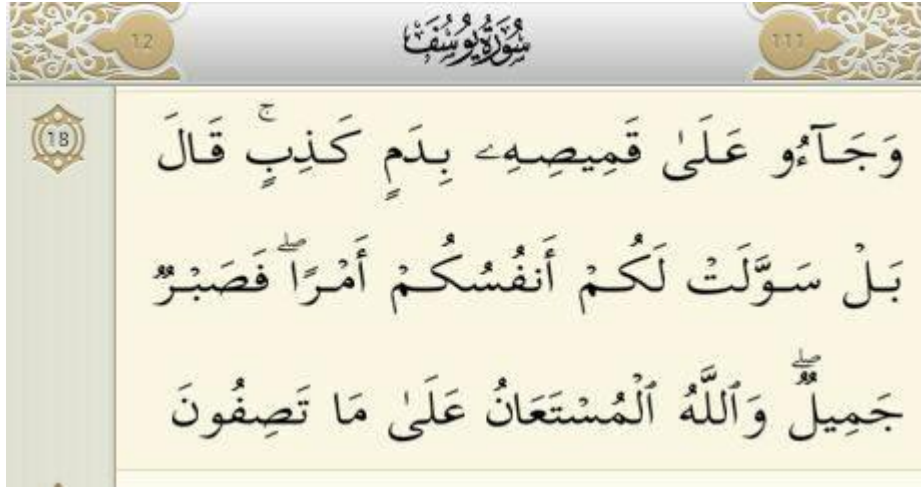 12 سُورَةُ يُوسُفَ 111
18
وَجَآءُو عَلَىٰ قَمِيصِهِۦ بِدَمٍ كَذِبٍۚ قَالَ
بَلْ سَوَّلَتْ لَكُمْ أَنفُسُكُمْ أَمْرًاۖ فَصَبْرٌ
جَمِيلٌۖ وَٱللَّهُ ٱلْمُسْتَعَانُ عَلَىٰ مَا تَصِفُونَ